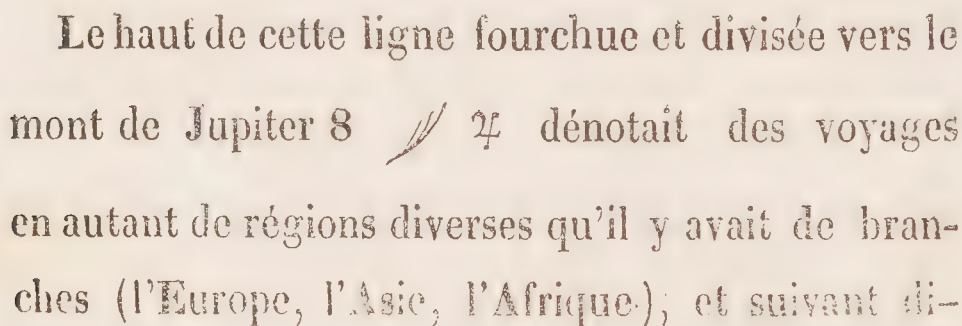 Le haut de cette ligne fourchue et divisée vers le
mont de Jupiter 8 ♃ dénotait des voyages
en autant de régions diverses qu'il y avait de bran-
ches (l'Europe, l'Asie, l'Afrique); et suivant di-